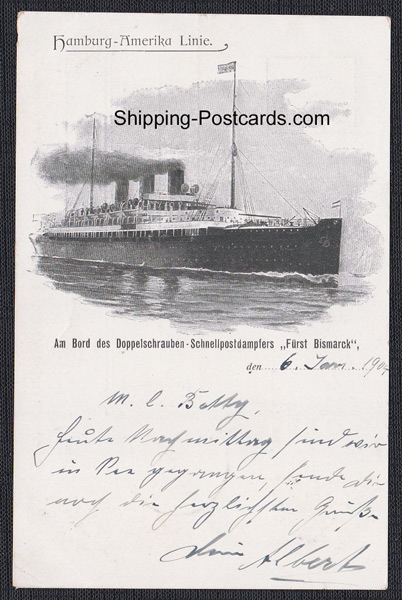 Hamburg-Amerika Linie.
Shipping-Postcards.com
Am Bord des Doppelschrauben-Schnellpostdampfers „Fürst Bismarck“,
den.....6. Jan. 190
M. l. Betty,
heute Nachmittag sind wir
in See gegangen, sende dir
noch die herzlichsten Grüße
Dein Albert